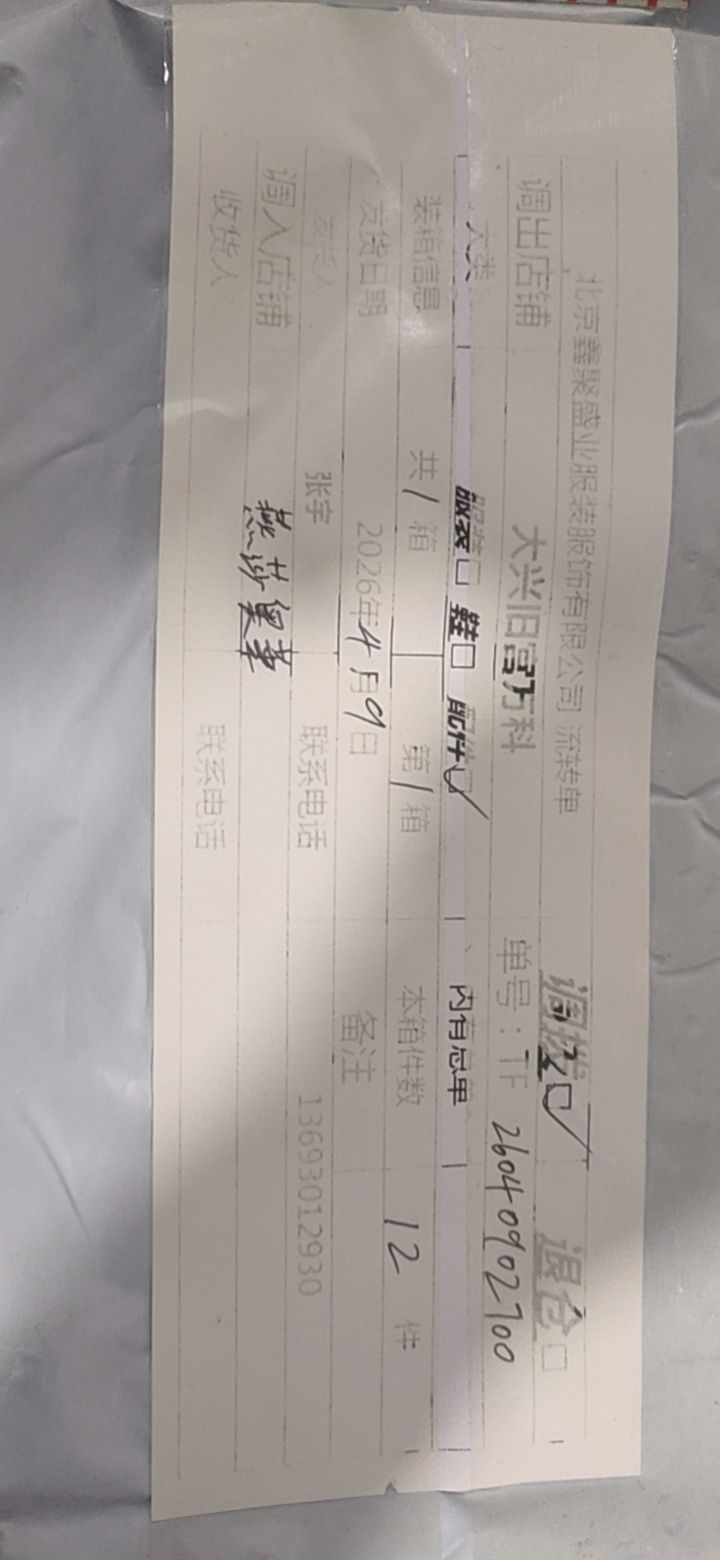 北京鑫聚盛业服装服饰有限公司 流转单 调拨☑ 退仓□
调出店铺 大兴旧宫万科 单号：TF 26040902700
大类 服装□ 鞋□ 配件☑ 内有总单
装箱信息 共1箱 第1箱 本箱件数 12 件
发货日期 2026年4月9日 备注
发货人 张宇 联系电话 13693012930
调入店铺 燕莎奥莱
收货人 联系电话